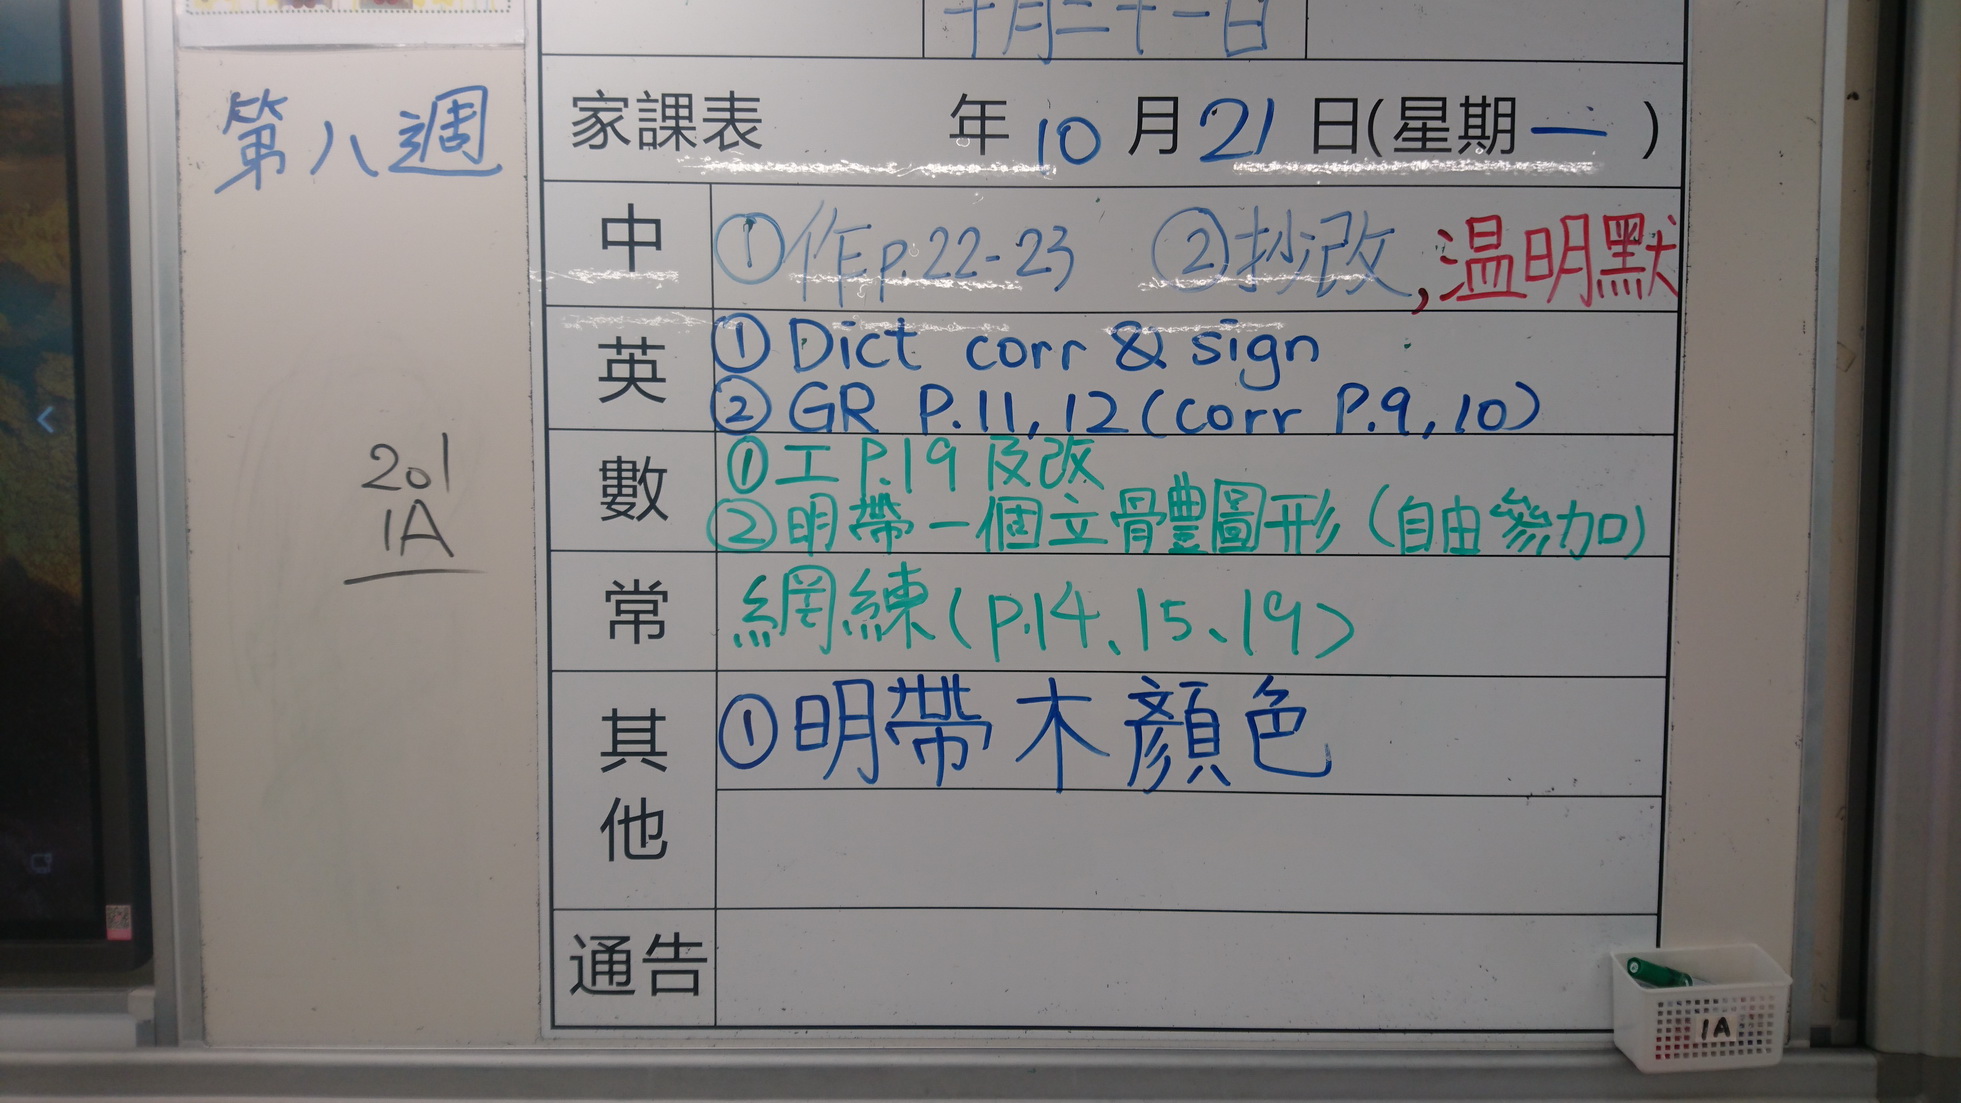 十月二十一日
第八週
家課表 年10月21日(星期一)
中 ①作p.22-23 ②抄改,温明默
英 ① Dict corr & sign
② GR P.11, 12 (corr P.9, 10)
數 ①工P.19及改
②明帶一個立體圖形(自由參加)
201
1A
常 網練(p.14、15、19)
其他 ①明帶木顏色
通告
1A